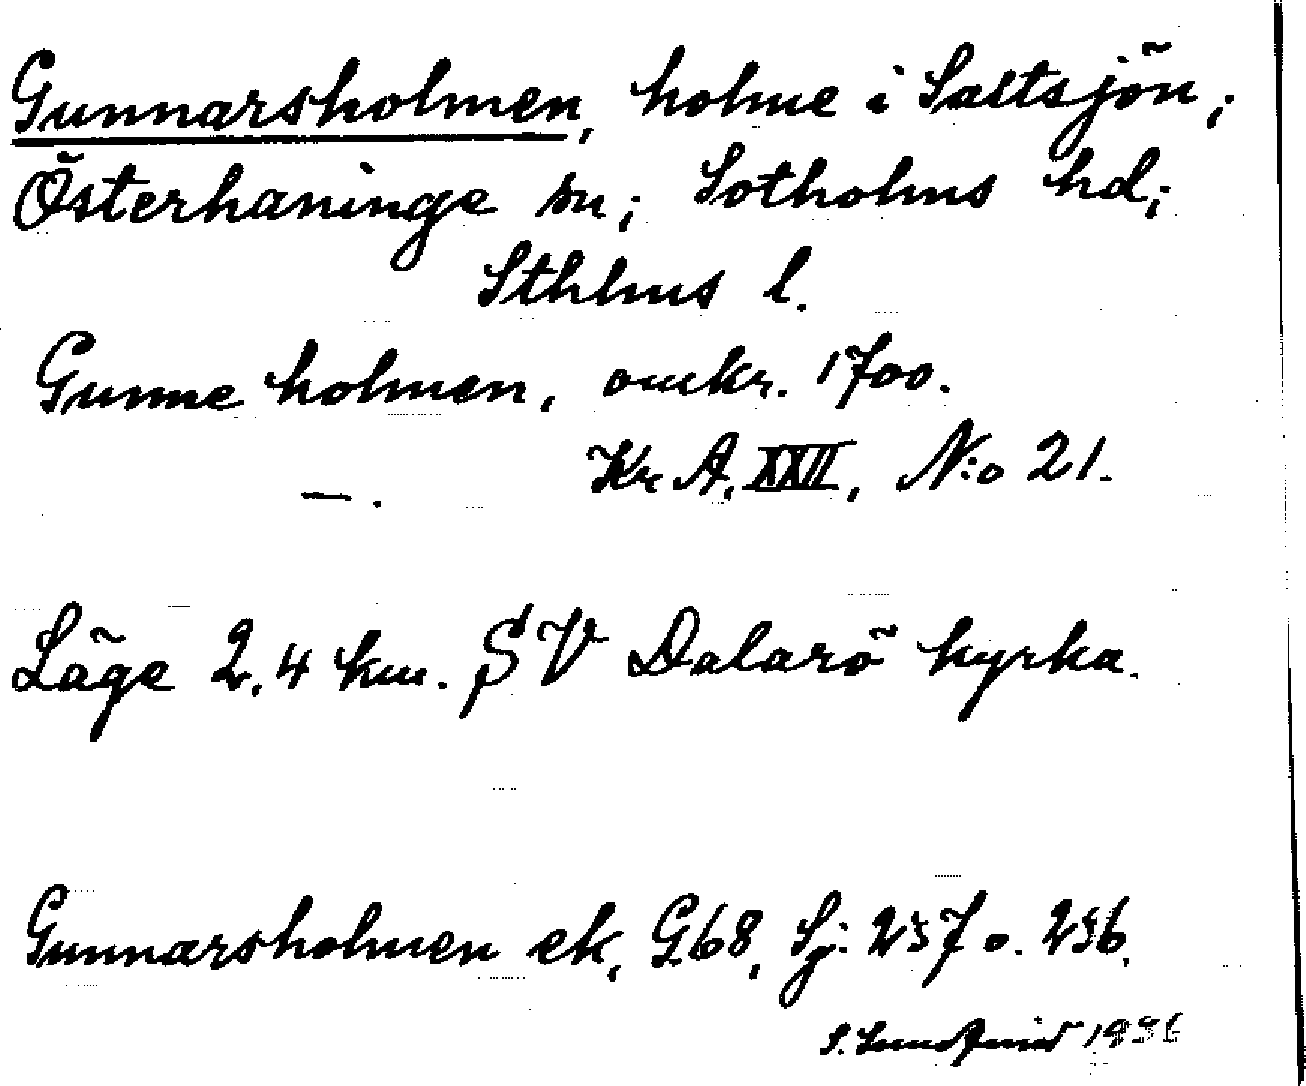 Gunnarsholmen, holme i Saltsjön;
Österhaninge sn; Sotholms hd;
Sthlms l.
Gunne holmen, omkr. 1700.
—. Kr A, XXII, N:o 21.
Läge 2,4 km. SV Dalarö kyrka.
Gunnarsholmen ek, G68, Sj: 257 o. 256.
S. Lundqvist 1936